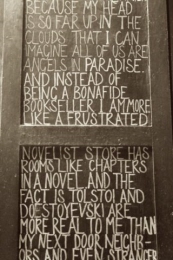 BECAUSE MY HEAD
IS SO FAR UP IN THE
CLOUDS THAT I CAN
IMAGINE ALL OF US ARE
ANGELS IN PARADISE.
AND INSTEAD OF
BEING A BONAFIDE
BOOKSELLER I AM MORE
LIKE A FRUSTRATED
NOVELIST STORE HAS
ROOMS LIKE CHAPTERS
IN A NOVEL AND THE
FACT IS TOLSTOI AND
DOESTOYEVSKI ARE
MORE REAL TO ME THAN
MY NEXT DOOR NEIGHB-
ORS AND EVEN STRANGER